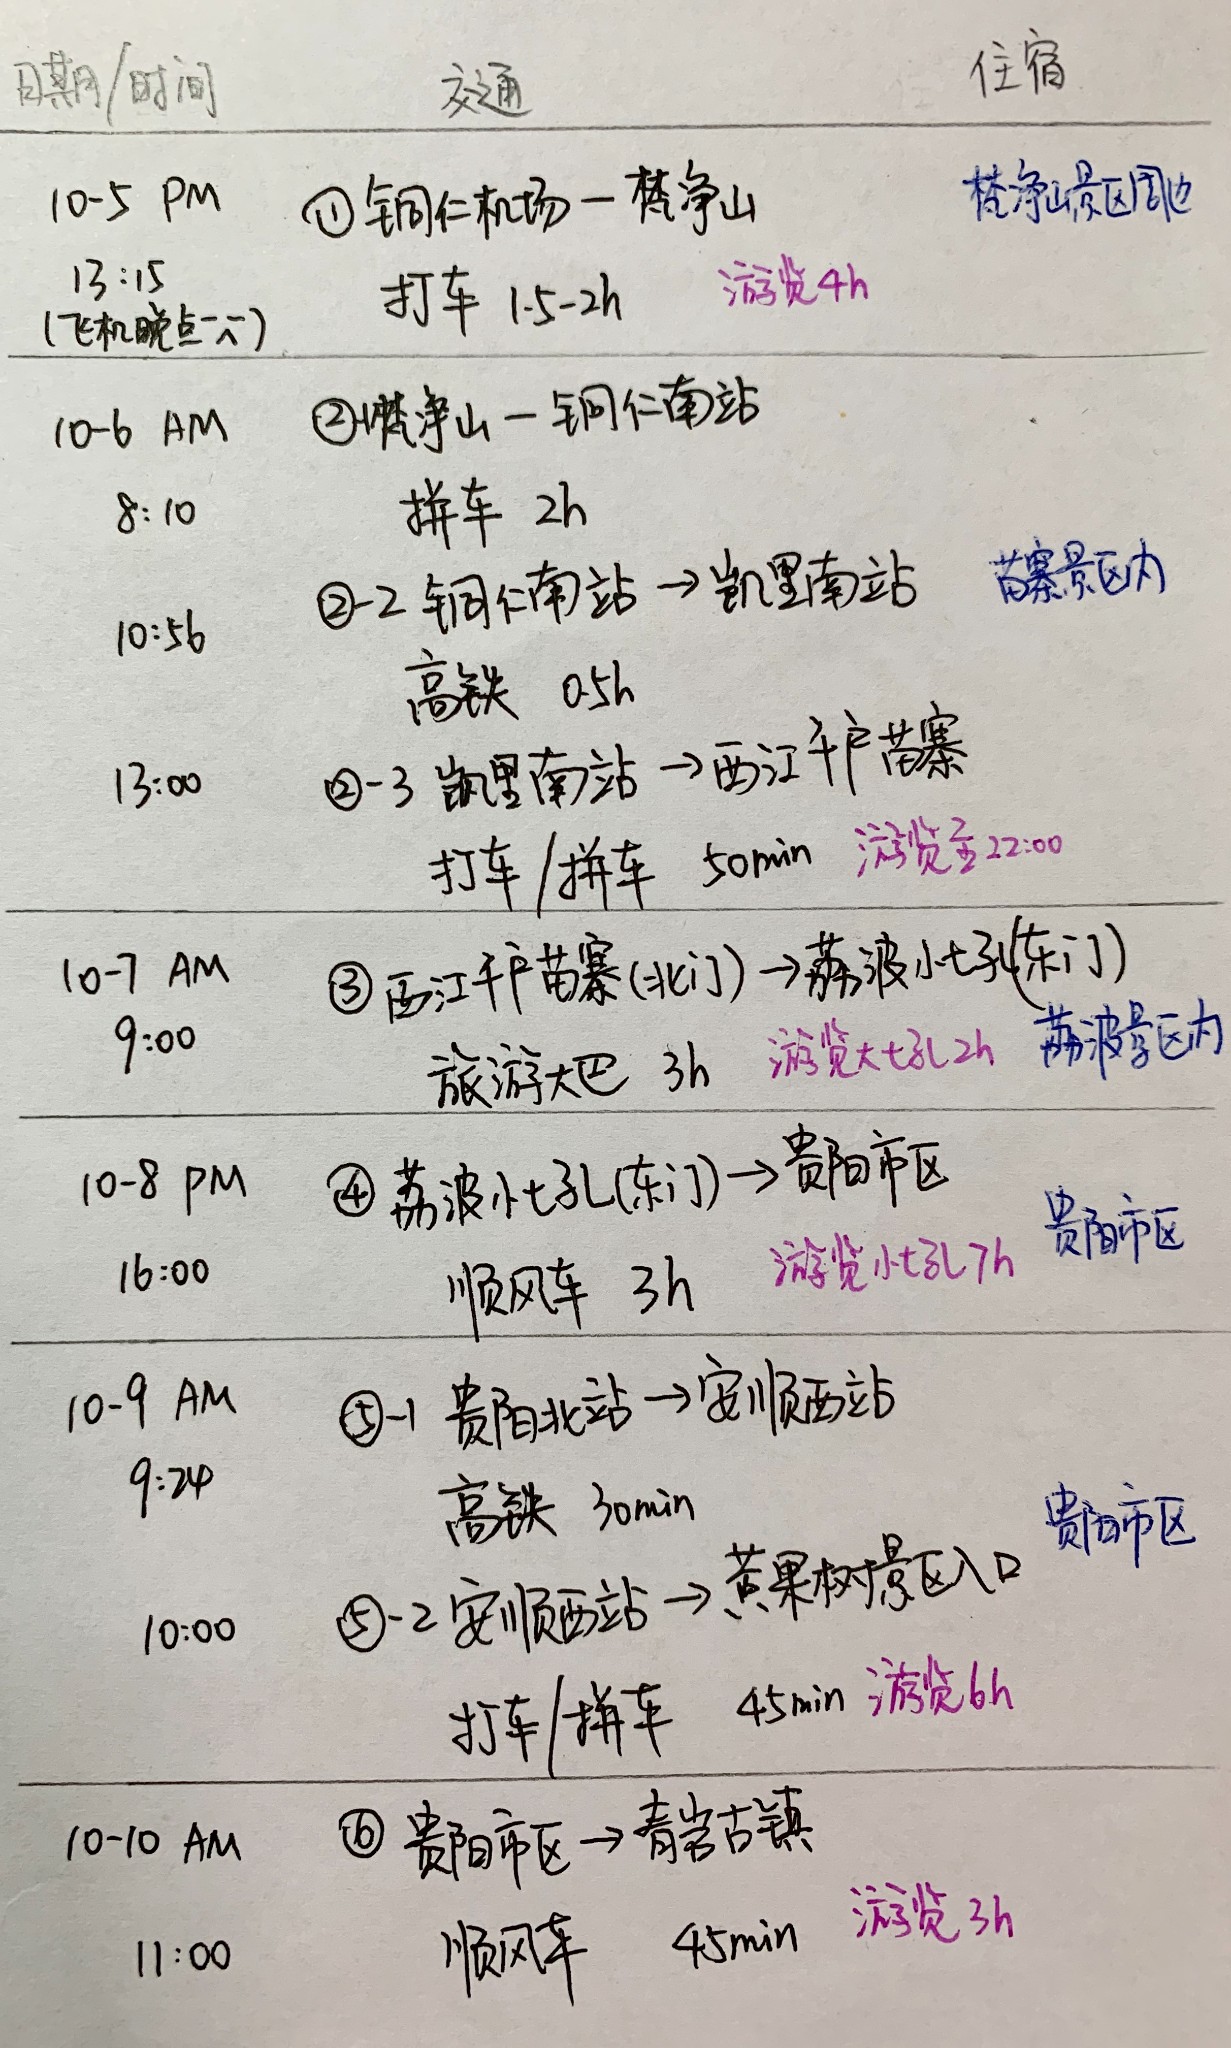 日期/时间 交通 住宿
10-5 PM ①铜仁机场－梵净山 梵净山景区周边
13:15 打车 1.5-2h 游览4h
(飞机晚点一六)
10-6 AM ②-1梵净山－铜仁南站
8:10 拼车 2h
10:56 ②-2 铜仁南站→凯里南站 苗寨景区内
高铁 0.5h
13:00 ②-3 凯里南站→西江千户苗寨
打车/拼车 50min 游览至22:00
10-7 AM ③西江千户苗寨(北门)→荔波小七孔(东门)
9:00 旅游大巴 3h 游览大七孔2h 荔波景区内
10-8 PM ④荔波小七孔(东门)→贵阳市区
16:00 顺风车 3h 游览小七孔7h 贵阳市区
10-9 AM ⑤-1 贵阳北站→安顺西站
9:24 高铁 30min 贵阳市区
10:00 ⑤-2 安顺西站→黄果树景区入口
打车/拼车 45min 游览6h
10-10 AM ⑥ 贵阳市区→青岩古镇
11:00 顺风车 45min 游览3h